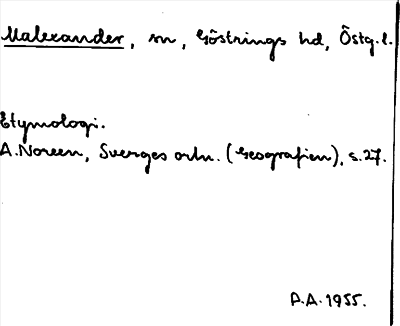 Malexander, sn, Göstrings hd, Östg. l.
Etymologi.
A. Noreen, Sveriges ortn. (Geografien), s. 27.
A.A. 1955.